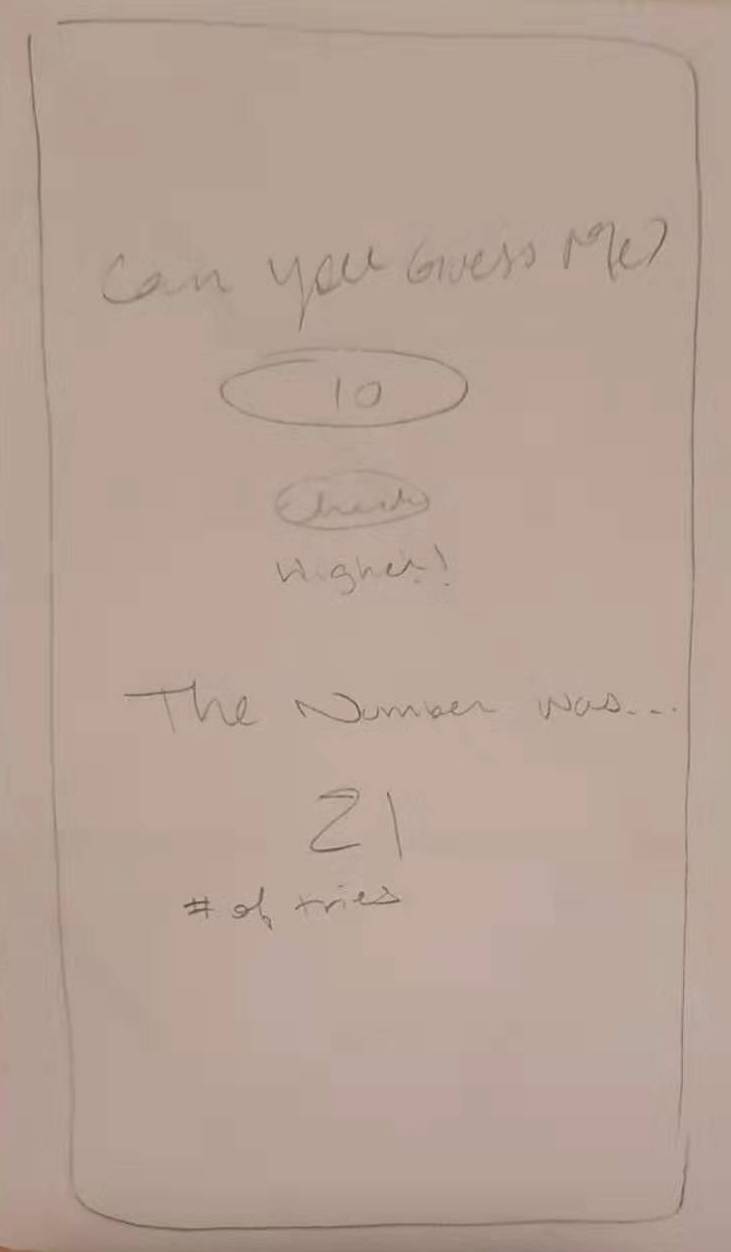 Can you Guess Me?
10
Check
Higher!
The Number was...
21
# of tries